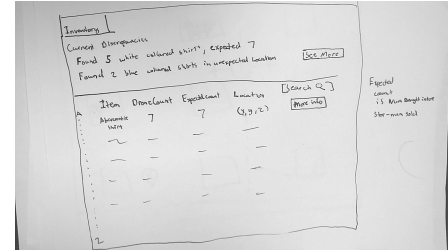 Inventory
Current Discrepancies
Found 5 white collared shirts, expected 7
Found 2 blue collared shirts in unexpected location
See More
[Search Q]
Item Drone Count Expected Count Location
More info
Abercrombie 7 7 (x, y, z)
shirt
A
Z
Expected
count
is Num Bought into
Store - num sold